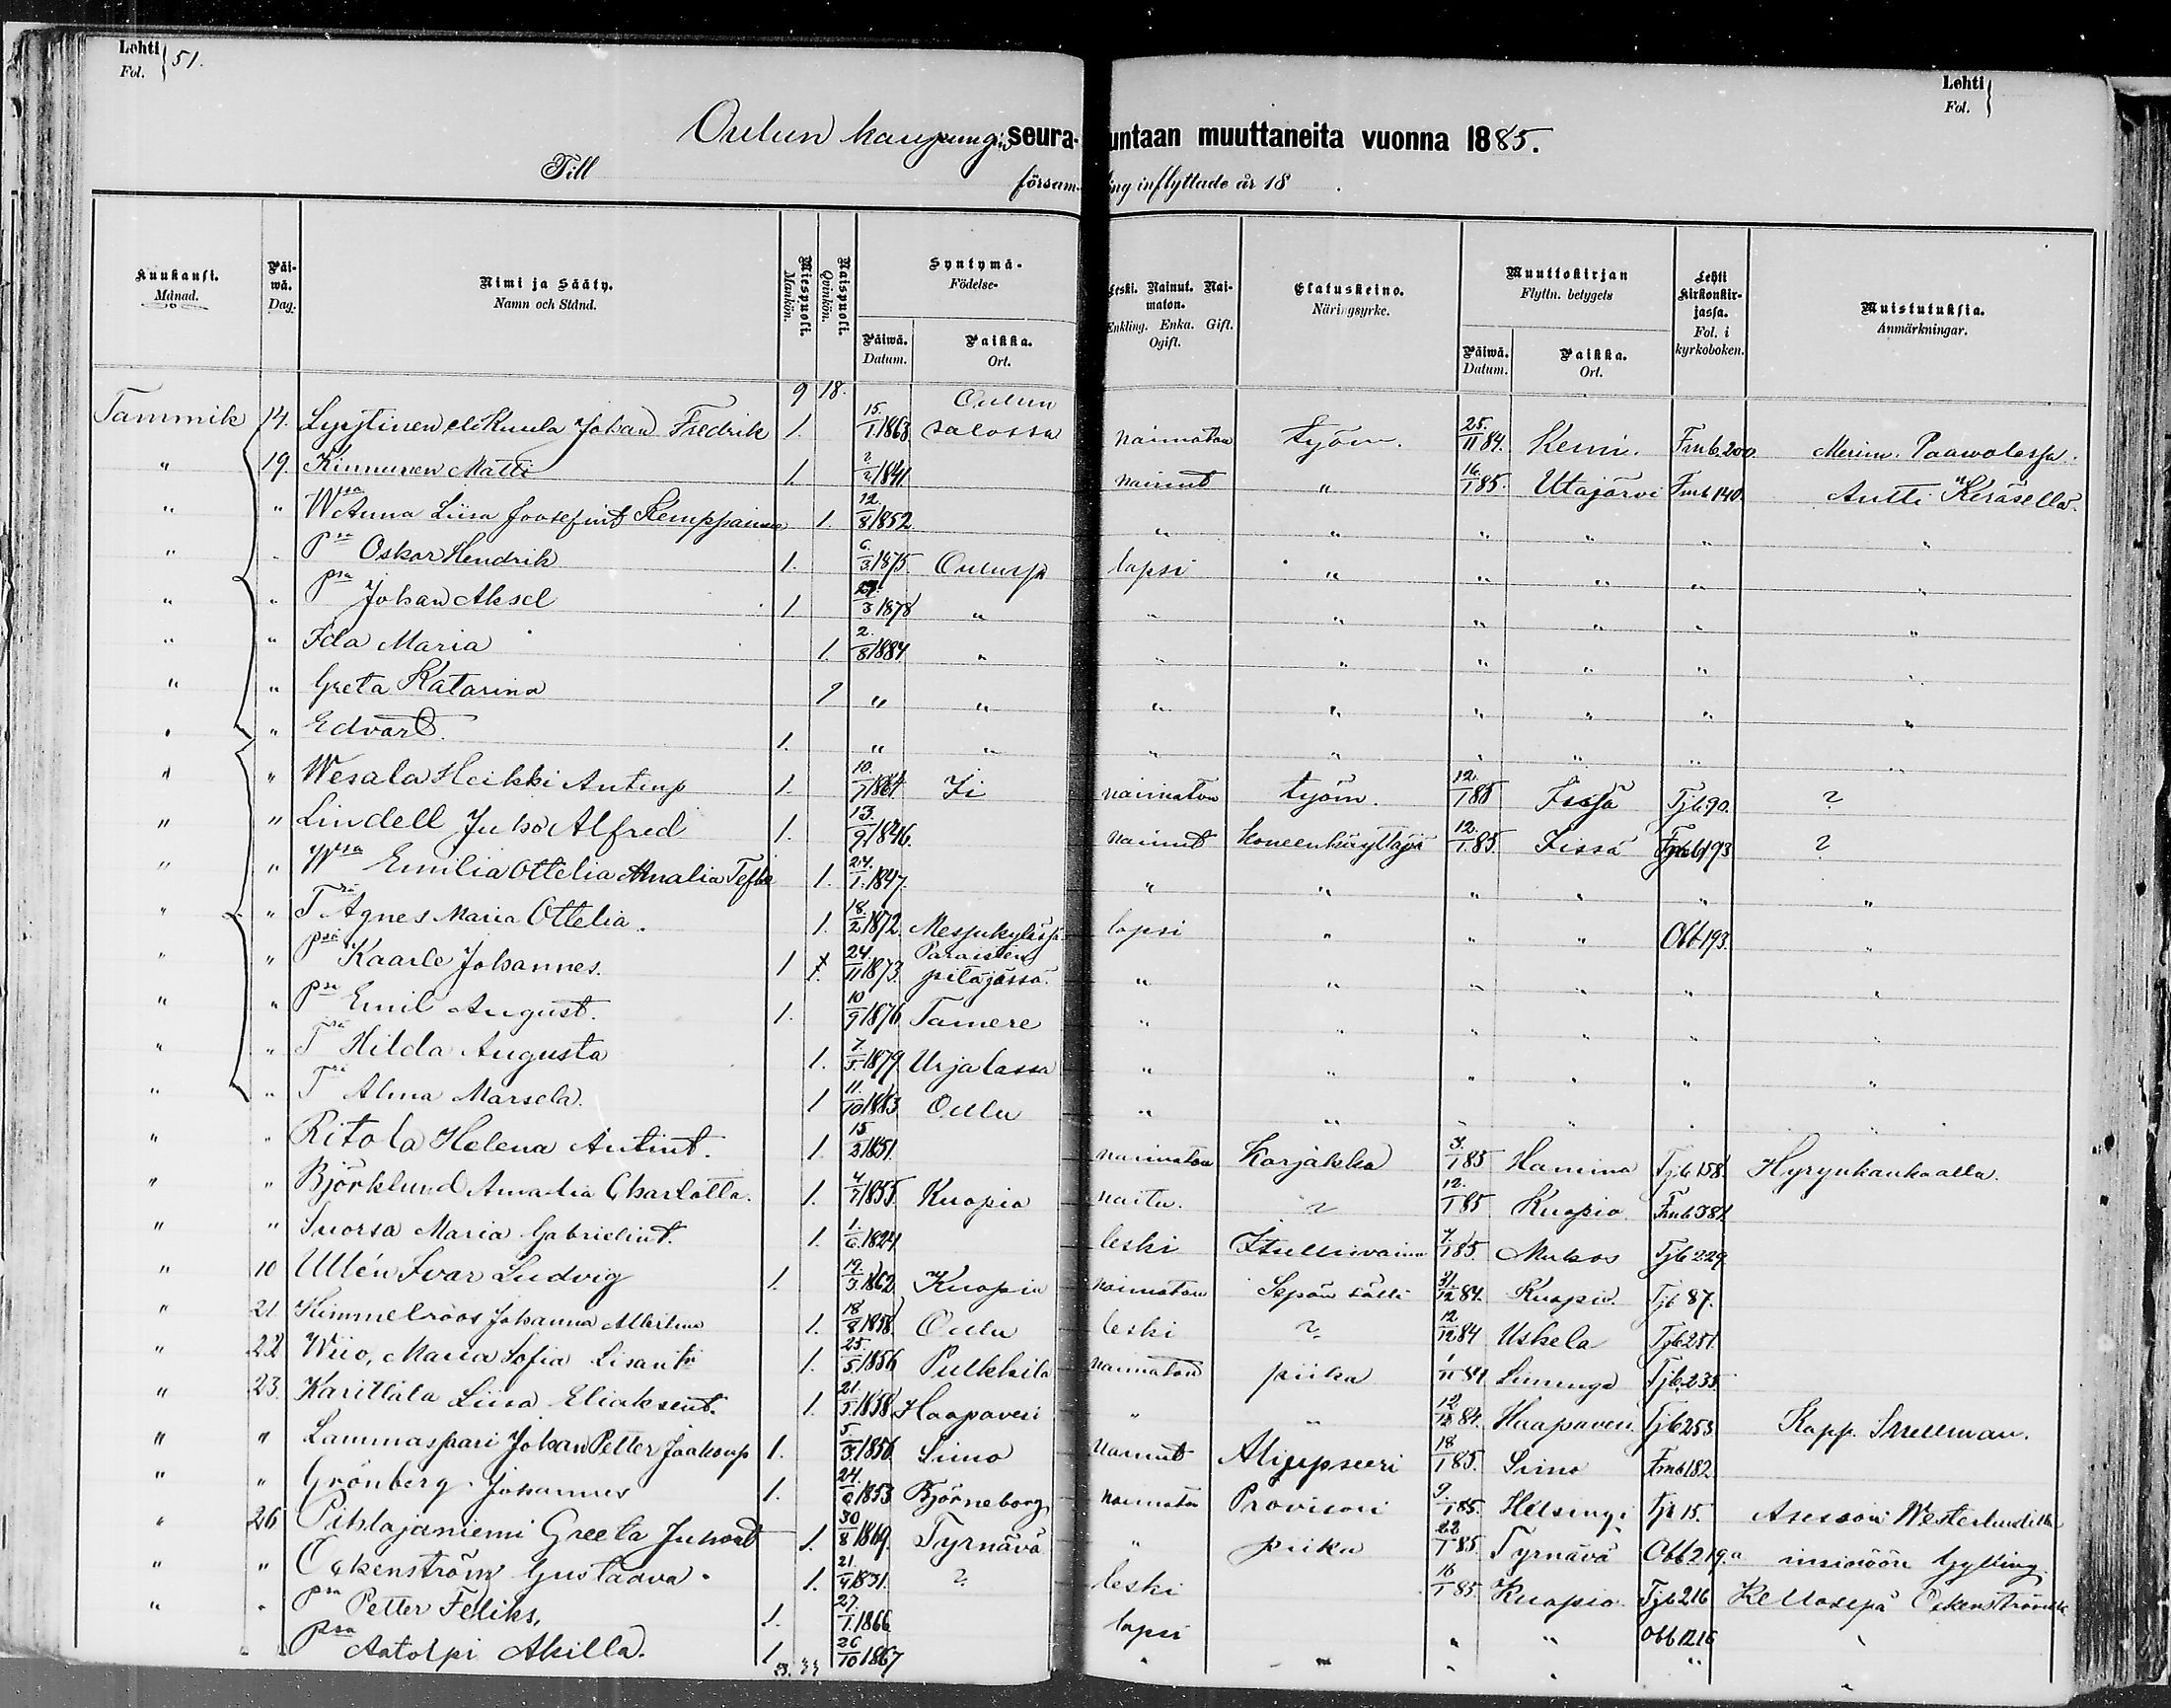 Lehti
Fol. } 51.
Lehti
Fol. }
Oulun kaupungin seurakuntaan muuttaneita vuonna 1885.
Till församling inflyttade år 18 .
Kuukausi. Månad. | Päiwä. Dag. | Nimi ja Sääty. Namn och Stånd. | Miespuoli. Mankön. | Naispuoli. Qvinkön. | Syntymä- Födelse- | Päiwä. Datum. | Paikka. Ort. | Leski. Nainut. Naimaton. Enkling. Enka. Gift. Ogift. | Elatuskeino. Näringsyrke. | Muuttokirjan Flyttn. betygets | Päiwä. Datum. | Paikka. Ort. | Lehti kirkonkirjassa. Fol. i kyrkoboken. | Muistutuksia. Anmärkningar.
9 18.
Tammik 14. Lyytinen eli Kuula Johan Fredrik 1. 15/1 1863 Oulunsalossa naimaton työm. 25/11 84. Kemi. Fmb 200. Merim. Paawolassa.
" 19. Kinnunen Matti 1 2/2 1841 nainut " 16/1 85. Utajärvi Fmb 140. Antti Keräsellä.
" " Wsa Anna Liisa Joosefint Kemppainen 1. 12/8 1852 " " " " " "
" " Psa Oskar Hendrik 1. 6/3 1875 Oulussa lapsi " " " " "
" " Psa Johan Aksel 1. 27/3 1878 " " " " " " "
" " Ida Maria 1. 2/8 1884 " " " " " " "
" " Greta Katarina 1 " " " " " " " "
" " Edvard. 1. " " " " " " " "
" " Wesala Heikki Antinp 1. 10/7 1864 Ii naimaton työm. 12/1 85 Iissä Tjb 90. ?
" " Lindell Juho Alfred 1. 13/9 1846. nainut koneenkäyttäjä 12/1 85. Iissä Fmb 193 ?
" " Wsa Emilia Ottelia Amalia 1. 24/1 1847. " " " " " "
" " Tr Agnes Maria Ottelia. 1. 18/2 1872. Messukylässä lapsi " " " Obb 193. "
" " Psa Kaarle Johannes. 1 24/11 1873 Paraisten pitäjässä. " " " " " "
" " Psa Emil August. 1. 10/9 1876 Tamere " " " " " "
" " Tr Hilda Augusta 1. 7/5 1879 Urjalassa " " " " " "
" " Tr Alma Marsela. 1 11/10 1883 Oulu " " " " " "
" " Ritola Helena Antint. 1. 15/3 1851. naimaton Karjakko 3/1 85 Hamina Tjb 158. Hyrynkankaalla.
" " Björklund Amalia Charlotta. 1. 4/7 1855 Kuopio naitu. ? 12/1 85 Kuopio Fmb 381
" " Suorsa Maria Gabrielint. 1. 1/6 1824 leski Itsellisvaimo 7/1 85. Muhos Tjb 229
" 10 Ullén Ivar Ludvig 1. 19/3 1862 Kuopio naimaton Sepän sälli 31/12 84. Kuopio. Tjb 87.
" 21. Himmelroos Johanna Albertina 1. 18/8 1858. Oulu leski ? 12/12 84 Uskela Tjb 251
" 22 Wiio, Maria Sofia Lisantr 1. 25/5 1856 Pulkkila naimaton piika 1/11 84 Liminga Tjb 235
" 23. Karittala Liisa Eliaksent. 1. 21/5 1858. Haapavesi " " 12/12 84. Haapavesi. Tjb 253 Kapp. Snellman.
" " Lammaspari Johan Petter Jaakonp 1. 5/3 1856 Simo nainut Aliupseeri 18/1 85. Simo Fmb 182
" " Grönberg. Johannes 1. 24/2 1853 Björneborg naimaton Provisori 9/1 85. Helsingi Tjb 15. Asessori Westerlundilla
" 26 Pihlajaniemi Greeta Juhont 1. 30/8 1869. Tyrnävä " piika 22/1 85. Tyrnävä Obb 219.a insinööri Gylling
" " Öckenström Gustaava. 1. 21/4 1831. ? leski 16/1 85. Kuopio Tjb 216 Kellosepä Öckenströmillä
" " Psa Petter Feliks. 1. 27/1 1866 lapsi " " Obb 1216 "
" " Psa Aatolpi Akilla. 1 26/10 1867 " " " " " "